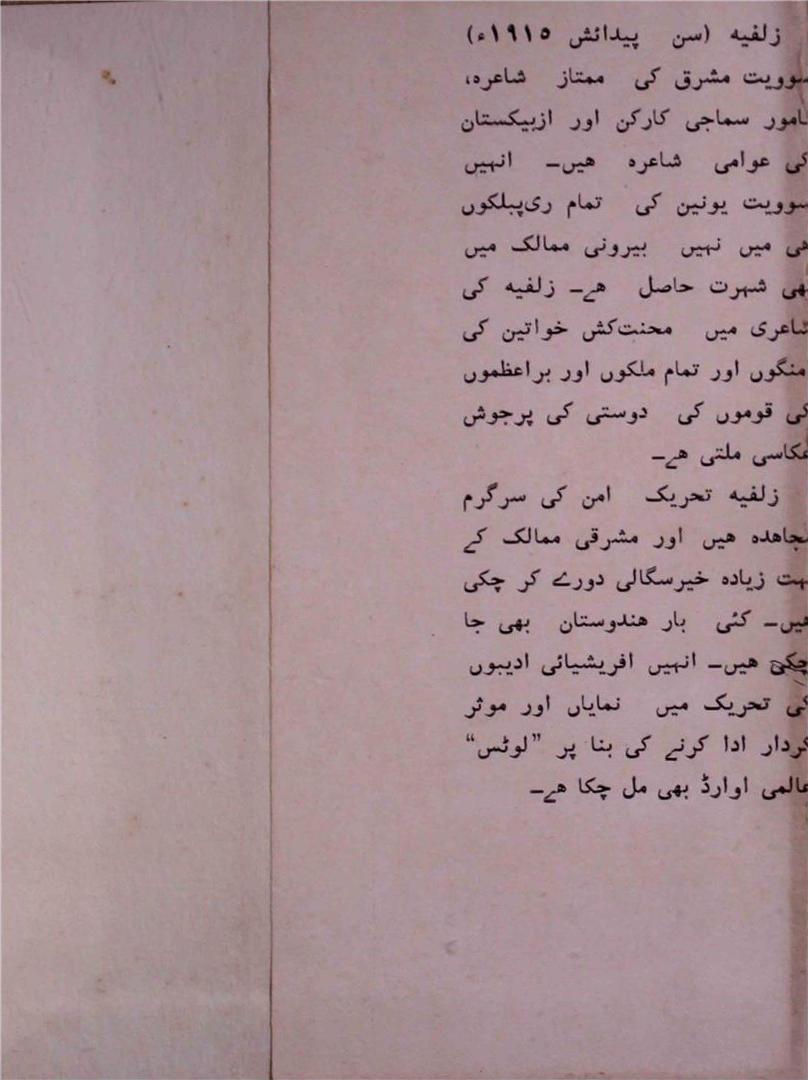 زلفیہ (سن پیدائش ۱۹۱۵ء)
سوویت مشرق کی ممتاز شاعرہ،
نامور سماجی کارکن اور ازبیکستان
کی عوامی شاعرہ ہیں۔ انہیں
سوویت یونین کی تمام ری‌پبلکوں
ہی میں نہیں بیرونی ممالک میں
بھی شہرت حاصل ہے۔ زلفیہ کی
شاعری میں محنت‌کش خواتین کی
امنگوں اور تمام ملکوں اور براعظموں
کی قوموں کی دوستی کی پرجوش
عکاسی ملتی ہے۔
زلفیہ تحریک امن کی سرگرم
مجاہدہ ہیں اور مشرقی ممالک کے
بہت زیادہ خیرسگالی دورے کر چکی
ہیں۔ کئی بار ہندوستان بھی جا
چکی ہیں۔ انہیں افریشیائی ادیبوں
کی تحریک میں نمایاں اور موثر
کردار ادا کرنے کی بنا پر ”لوٹس“
عالمی اوارڈ بھی مل چکا ہے۔